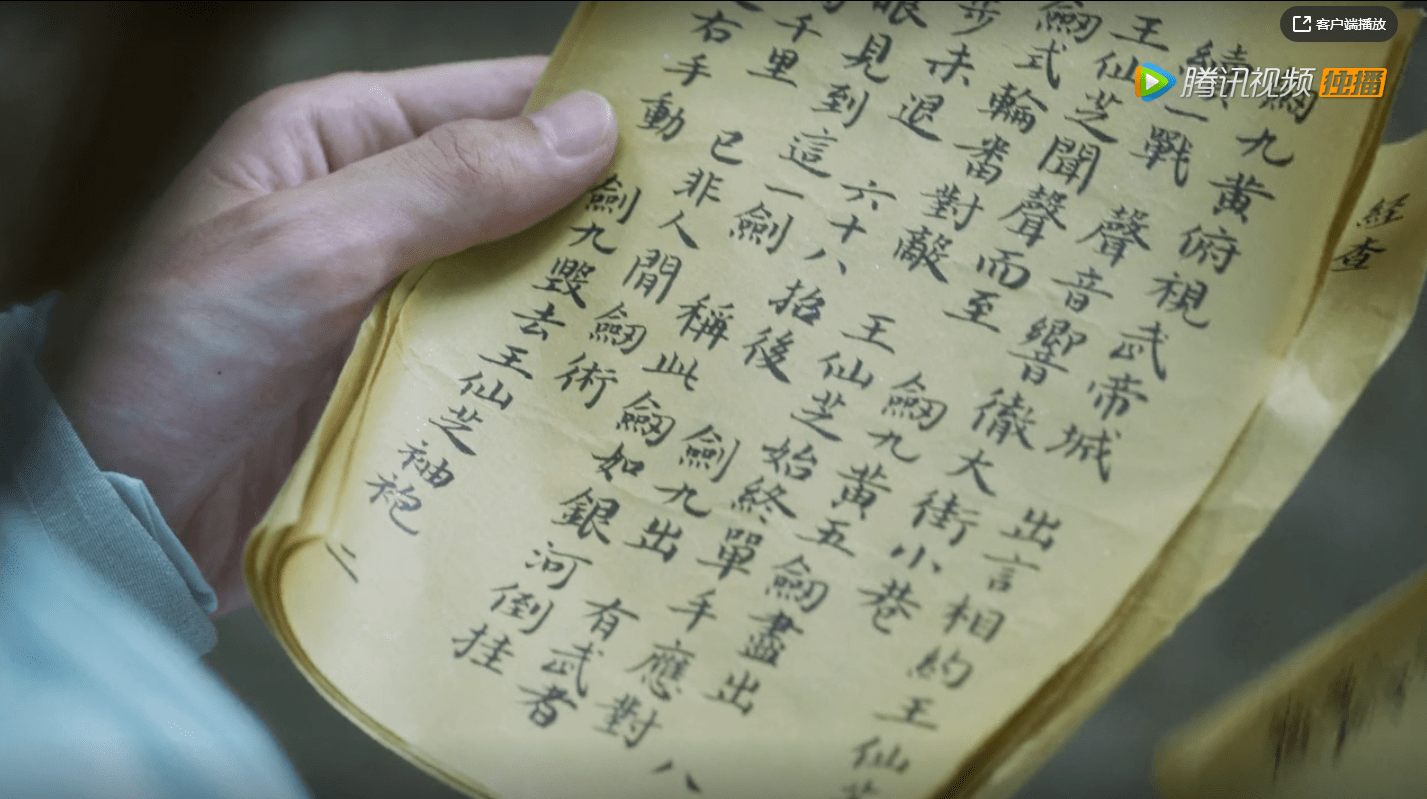 客户端播放
腾讯视频 独播
經查
劒九黃俯視武帝城 出言相約王仙芝
續一戰 聲音響徹大街小巷
王仙芝聞聲而至 劒九黃五劒盡出 八
劒式輪番對敵 王仙芝始終單手應對
步未退 六十八招後 劍九出 有武者
眼見到這一劍 稱此劒如銀河倒挂
千里 已非人間劒術
右手動 劍九毀去王仙芝袖袍 二